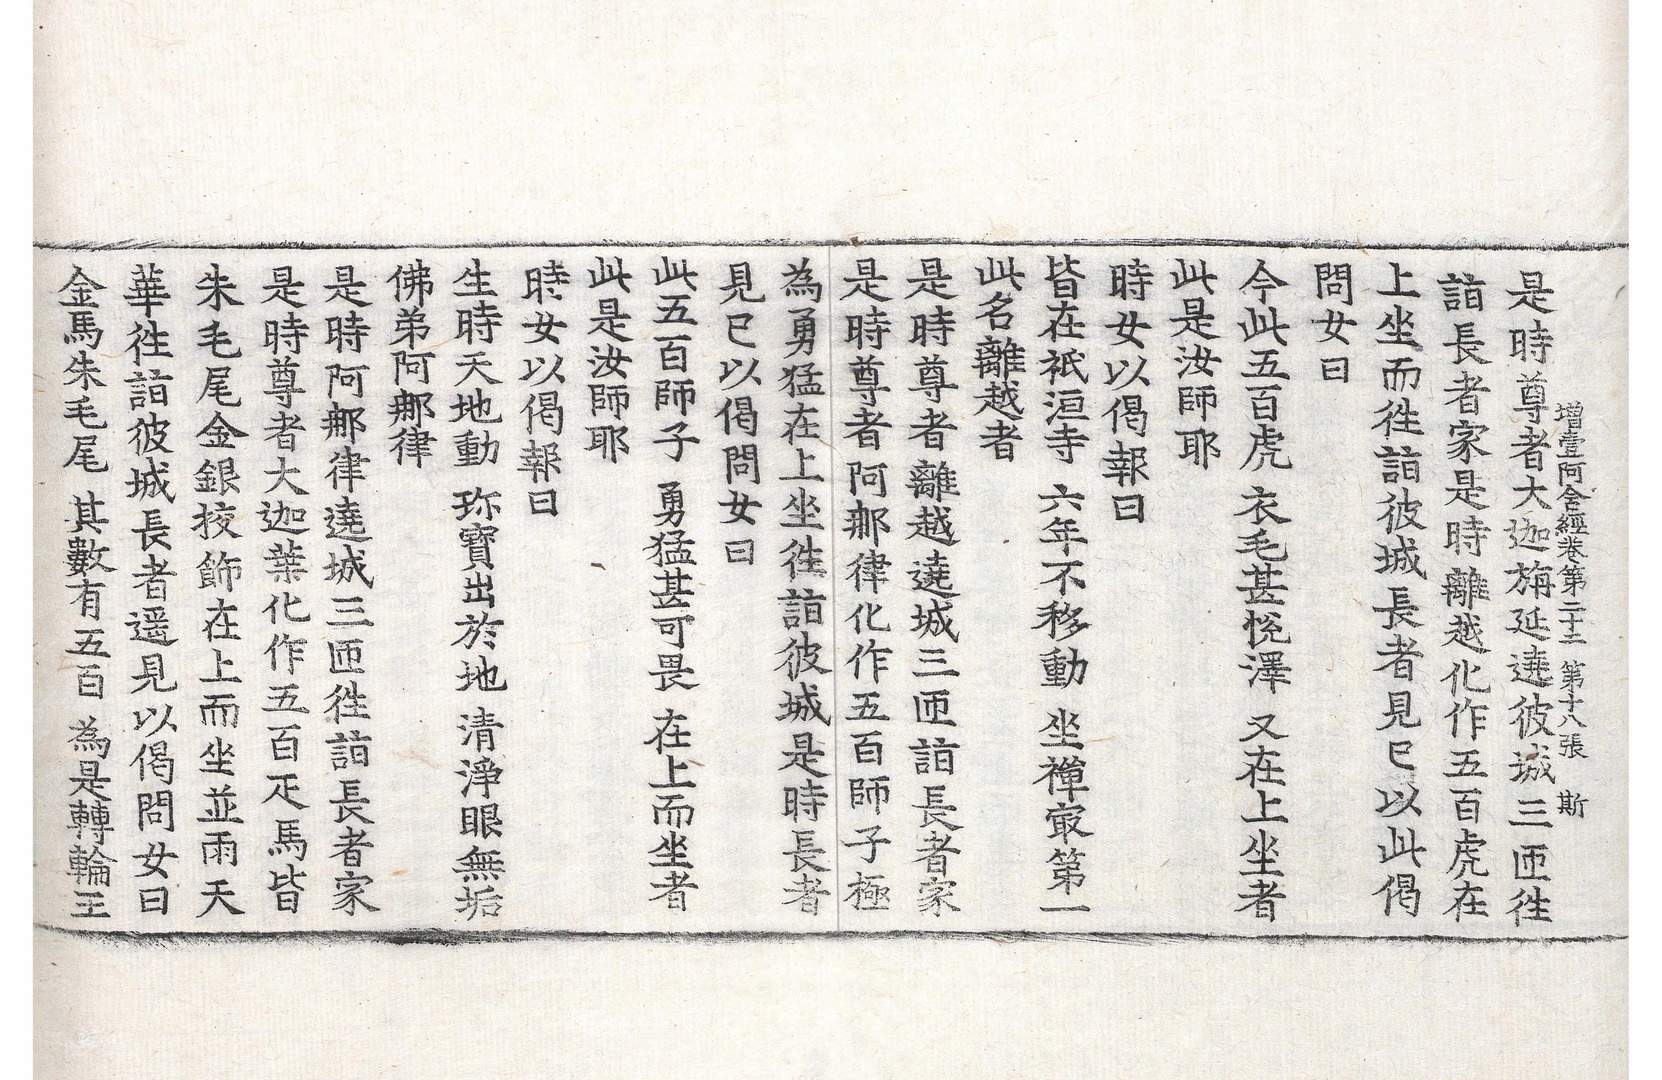 增壹阿含經卷第二十二 第十八張 斯
是時尊者大迦旃延遶彼城三匝徃
詣長者家是時離越化作五百虎在
上坐而徃詣彼城長者見已以此偈
問女曰
今此五百虎 衣毛甚悅澤 又在上坐者
此是汝師耶
時女以偈報曰
皆在祇洹寺 六年不移動 坐禪㝡第一
此名離越者
是時尊者離越遶城三匝詣長者家
是時尊者阿那律化作五百師子極
為勇猛在上坐徃詣彼城是時長者
見已以偈問女曰
此五百師子 勇猛甚可畏 在上而坐者
此是汝師耶
時女以偈報曰
生時天地動 珎寶出於地 清淨眼無垢
佛弟阿那律
是時阿那律遶城三匝徃詣長者家
是時尊者大迦葉化作五百疋馬皆
朱毛尾金銀挍飾在上而坐並雨天
華徃詣彼城長者遥見以偈問女曰
金馬朱毛尾 其數有五百 為是轉輪王